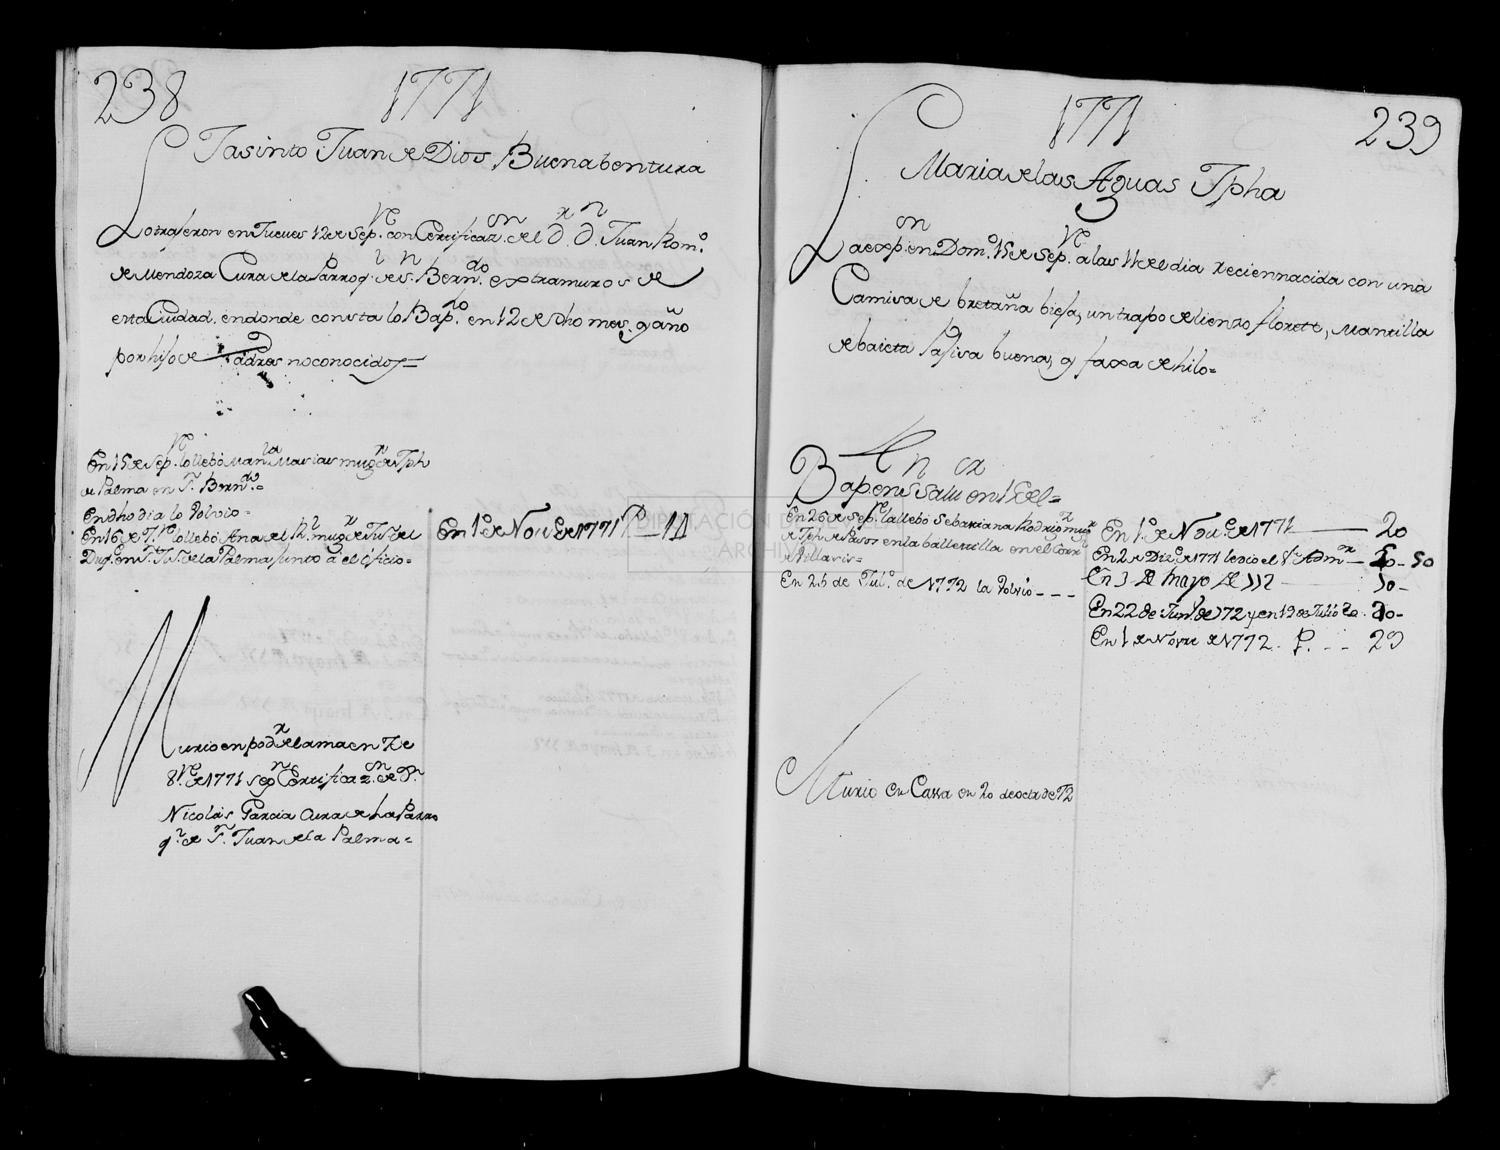 238 1771
Jasinto Juan de Dios Buenabentura
Lo trajeron en Jueves 12 de Sepᵉ. con Certificazⁿ. de el D.ʳ Dⁿ. Juan Romº.
de Mendoza Cura de la Parroqˡ. de Sⁿ. Bernᵈᵒ. extramuros de
esta Ciudad. en donde consta lo Bapᵈᵒ. en 12 de dho mes, y año
por hijo de Padres no conocidos=
En 15 de Sepᵉ. lo llebó Manˡᵃ Masias mugᵉʳ de Jph
de Palma en S. Bernᵈᵒ=
En dho dia lo Volvio=
En 16 de lo llebó Ana de el mugʳ de
en de la Palma junto a el =
En 1º de Novᵉ de 1771 P 11
Murio en podʳ de la ama en 7 de
8ᵇʳᵉ de 1771 segⁿ Certificazⁿ. de Dⁿ
Nicolas Garcia Cura de la Parro
qˡ. de S. Juan de la Palma=
1771 239
Maria de las Aguas Jpha
La expⁿ. en Domº. 15 de Sepᵉ. a las 11 de el dia reciennacida con una
Camisa de bretaña bieja, un trapo de lienso florete, Mantilla
de baieta Pajisa buena, y faxa de hilo=
Bapᵈᵃ en Sⁿ Salvʳ en 15 de el=
En 26 de Sepᵉ. la llebó Sebastiana Rodrigᶻ mugʳ
de Jph de en la ballestilla en el
de Villa
En 26 de Julº. de 1772 la Volvió - - -
En 1º de Novᵉ de 1771 20
En 2 de Dizᵉ de 1771 le dio el Sʳ Admʳ 50
En 3 de Mayo de 772 50-
En 22 de Junº. de 772 y en 19 de Julio 20-
En 1 de Novre de 1772. P. - - 29
Murio en Cassa en 20 de octʳ de 72
DIPUTACIÓN DE
ARCHIVO